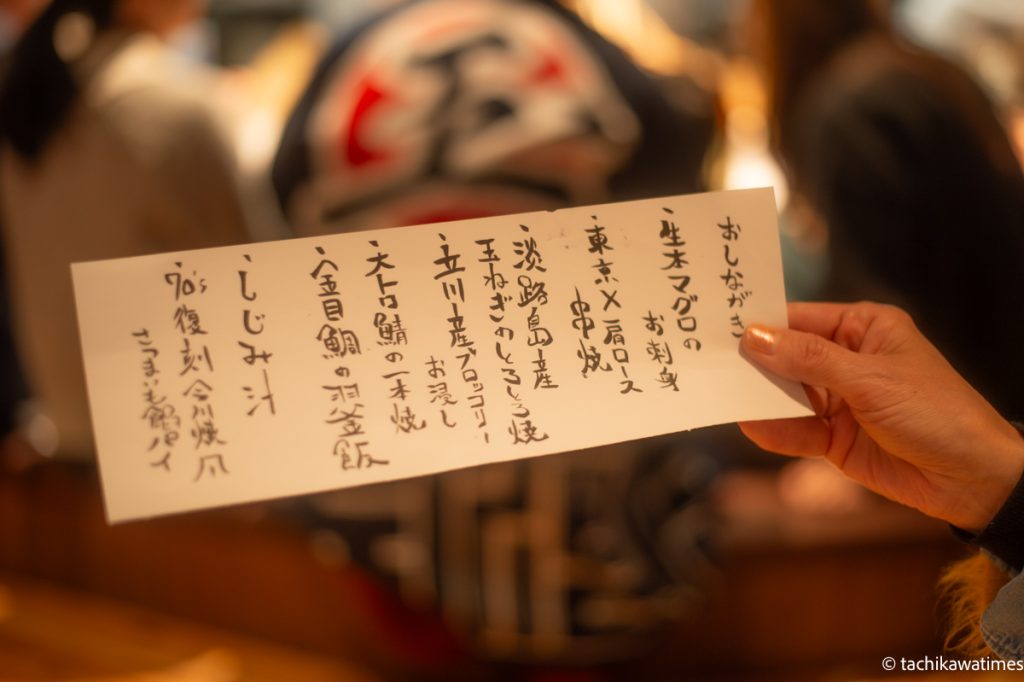 おしながき
・生本マグロの
お刺身
・東京X肩ロース
串焼
・淡路島産
玉ねぎのとろとろ焼
・立川産ブロッコリー
お浸し
・大トロ鯖の一本焼
・金目鯛の羽釜飯
・しじみ汁
・70's復刻今川焼風
さつまいも餡パイ
© tachikawatimes